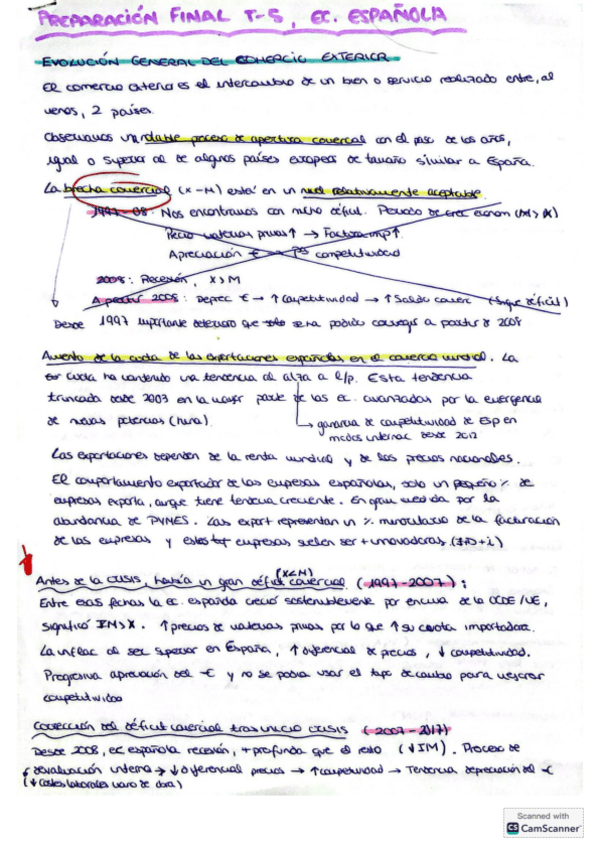 PREPARACIÓN FINAL T-5, EC. ESPAÑOLA
EVOLUCIÓN GENERAL DEL COMERCIO EXTERIOR
El comercio exterior es el intercambio de un bien o servicio realizado entre, al
menos, 2 países.
Observamos un notable proceso de apertura comercial con el paso de los años,
igual o superior al de algunos países europeos de tamaño similar a España.
La brecha comercial (X-M) está en un nivel relativamente aceptable.
1997-08: Nos encontramos con mucho déficit. Periodo de crec económ (M > X)
Precio materias primas ↑ → Factura imp ↑.
Apreciación € → competitividad
2008: Recesión, X > M
A partir 2008: Deprec € → ↑ Competitividad → ↑ Saldo comerc (Sigue déficit)
Desde 1997 importante deterioro que solo será podido corregir a partir de 2008
Aumento de la cuota de las exportaciones españolas en el comercio mundial. La
cuota ha mantenido una tendencia al alza a l/p. Esta tendencia
truncada desde 2003 en la mayor parte de las ec. avanzadas por la emergencia
de nuevas potencias (China).
→ ganancia de competitividad de Esp en
mcdos internac desde 2012
Las exportaciones dependen de la renta mundial y de los precios nacionales.
El comportamiento exportador de las empresas españolas, solo un pequeño % de
empresas exporta, aunque tiene tendencia creciente. En gran medida por la
abundancia de PYMES. Las export representan un % minoritario de la facturación
de las empresas y estas empresas suelen ser + innovadoras (I+D+i)
(X<M)
Antes de la crisis, había un gran déficit comercial (1997-2007):
Entre esas fechas la ec. española creció sosteniblemente por encima de la OCDE/UE,
significó IM>X. ↑ precios de materias primas por lo que ↑ su cuota importadora.
La inflac al ser superior en España, ↑ diferencial de precios, ↓ competitividad.
Progresiva apreciación del € y no se podía usar el tipo de cambio para mejorar
competitividad
Corrección del déficit comercial tras inicio crisis (2007-2017)
Desde 2008, ec española recesión, + profunda que el resto (↓IM). Proceso de
devaluación interna → ↓ diferencial precios → ↑ competitividad → Tendencia depreciación del €
(↓ costes laborales mano de obra)
Scanned with
CS CamScanner